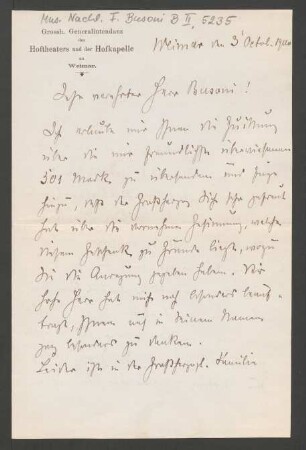 Mus. Nachl. F. Busoni B II, 5235
Grossh. Generalintendanz
des
Hoftheaters und der Hofkapelle
zu
Weimar.
Weimar den 3 Octob. 1900
Sehr verehrter Herr Busoni!
Ich erlaube mir Ihnen die Quittung
über die mir freundlichst überwiesenen
501 Mark zu übersenden und füge
hinzu, daß der Großherzog sich sehr gefreut
hat über die vornehme Gesinnung, welche
diesem Geschenk zu Grunde liegt, wozu
Sie die Anregung gegeben haben. Der
hohe Herr hat mich noch besonders beauf-
tragt, Ihnen auch in Seinem Namen
ganz besonders zu danken.
Leider ist in der Großherzogl. Familie